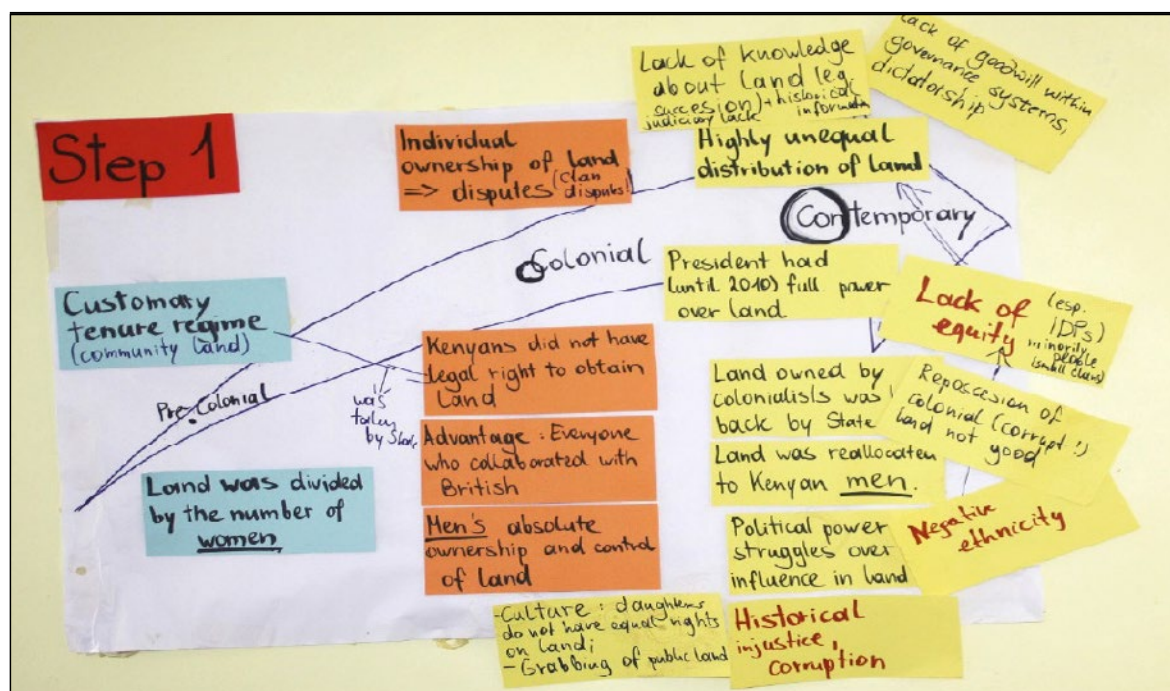 Step 1
Customary
tenure regime
(community land)
Pre Colonial
Land was divided
by the number of
women
Individual
ownership of land
=> disputes (Clan
disputes!)
Colonial
Kenyans did not have
legal right to obtain
Land
was
by
Advantage: Everyone
who collaborated with
British
Men's absolute
ownership and control
of land
Lack of knowledge
about land (e.g.
succesion) + historical
judiciary lack
Lack of goodwill within
governance systems,
dictatorship
Highly unequal
distribution of Land
Contemporary
President had
(until 2010) full power
over land
Lack of
equity
(esp.
IDPs)
minority
people
Land owned by
colonialists was
back by State
Reposession of
colonial (corrupt!)
land not good
Land was reallocated
to Kenyan men.
Political power
struggles over
influence in land
Negative
ethnicity
-Culture: daughters
do not have equal rights
on land;
- Grabbing of public land
Historical
injustice,
corruption